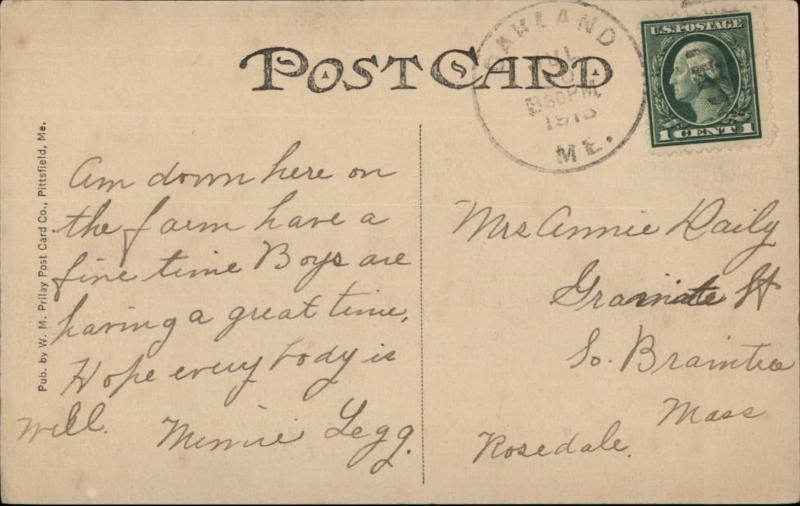 POST CARD
OAKLAND
830PM
1913
ME.
U.S. POSTAGE
1 CENT 1
Pub. by W. M. Prilay Post Card Co., Pittsfield, Me.
Am down here on
the farm have a
fine time Boys are
having a great time.
Hope every body is
well. Minnie Legg.
Mrs Annie Daily
Granite St
So. Braintree
Mass
Rosedale.